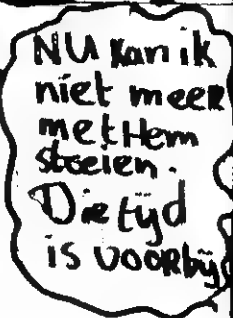 NU kan ik
niet meer
met Hem
stoeien.
Die tijd
is voorbij